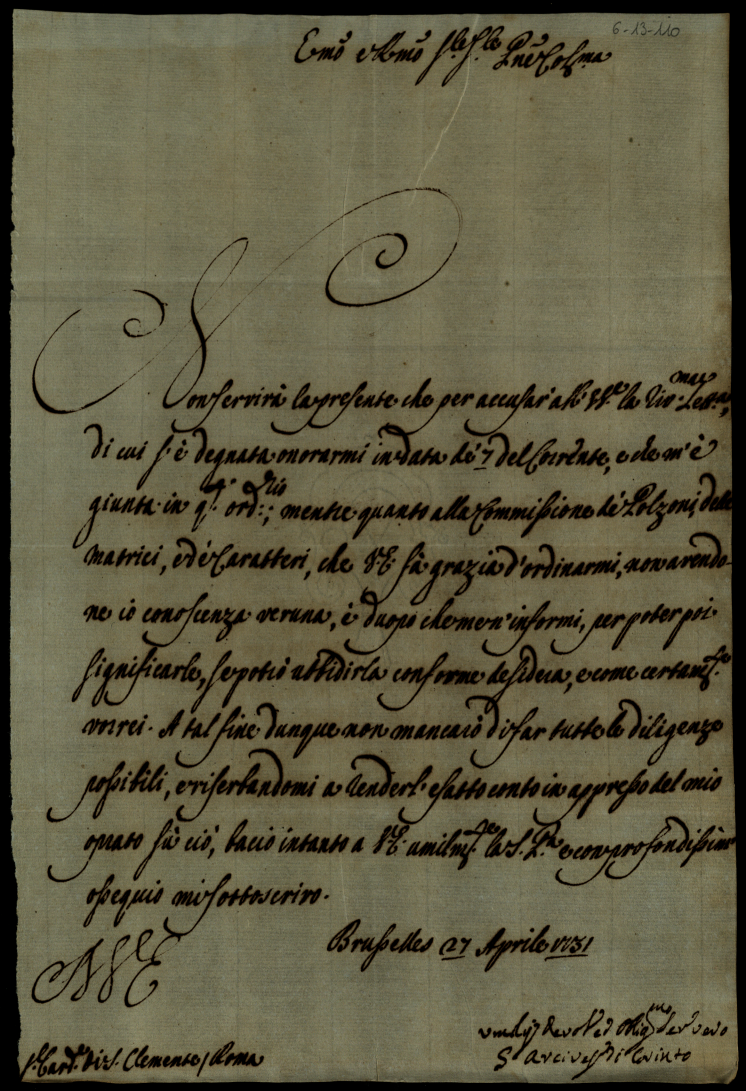 6-13-110
Emo e Rmo Sre Sre Pne Colmo
Non servirà la presente che per accusar' all' V.E. la Riv.ma Lett.ra,
di cui s'è degnata onorarmi in data de' 7 del Corrente, e che m'è
giunta in q.to ord.rio; mentre quanto alla Commissione de' Polzoni, delle
matrici, e de' Caratteri, che V.E. fà grazia d'ordinarmi, non avendo-
ne io conoscenza veruna, è duopo che me n'informi, per poter poi
significarle, se potrò ubbidirla conforme desidera, e come certam.te
vorrei. A tal fine dunque non mancarò di far tutte le diligenze
possibili, e riserbandomi a renderl' esatto conto in appresso del mio
oprato sù ciò, bacio intanto a V.E. umilm.te le S. P.a e con profondissimo
ossequio mi sottoscrivo.
Brusselles 27 Aprile 1731
S.r Card. di S. Clemente / Roma
Devot ed Oblig.mo Serv vero
G Arcives di Corinto